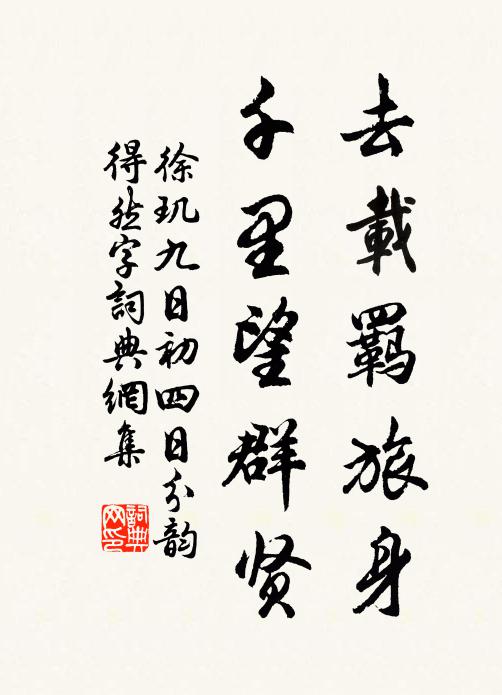 去載羇旅身
千里望群贤
徐玑九日初四日分韵
得然字詞典網集
詞典网印